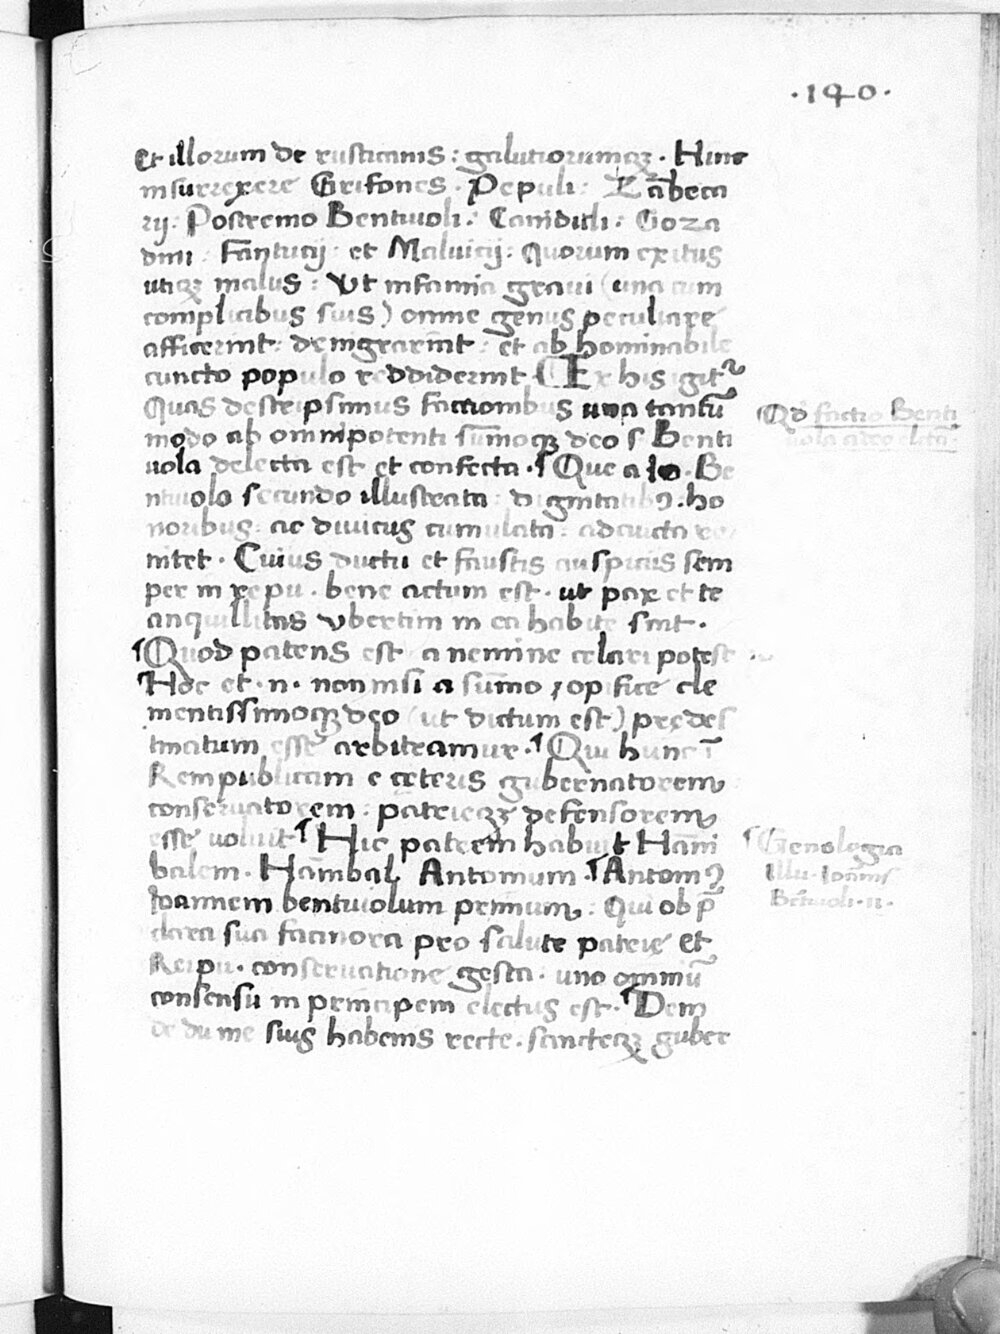 ·140·
Et illorum de rusticanis: galutiorumqꝫ. Hinc
insurrexere Grifones. Pepuli: Zābeca
rij: Postremo Bentiuoli: Caniduli: Goza
dini: Fantucij: et Maluicij: Quorum exitus
utiqꝫ malus: Vt infamia graui (una cum
complicibus suis) omne genus peculiare
affecerint: denigrarint: et abhominabile
cuncto populo reddiderint. Ex his igitᷣ
Quas descripsimus factionibus una tantū
modo ab omnipotenti sūmoqꝫ deo s Benti
uola delecta est et confecta. ¶Que a Io. Be
ntiuolo secundo illustrata: dignitatibꝰ: ho
noribus: ac diuicijs cumulata: adaucta re
nitet. Cuius ductu et faustis auspicijs sem
per in repu. bene actum est. ut pax et tr
anquillitas vbertim in ea habite sint.
¶Quod patens est a nemine celari potest
Hoc et. n. non nisi a sūmo opifice cle
mentissimoqꝫ deo (ut dictum est) predes
tinatum esse arbitramur. ¶Qui hunc ī
Rempublicam e ceteris gubernatorem
conseruatorem: patrieqꝫ defensorem
esse uoluit ¶Hic patrem habuit Hāni
balem. Hānibal Antonium. ¶Antoniꝰ
Ioannem bentiuolum primum: Qui ob p̄
clara sua facinora pro salute patrie et
Reipu. conseruatione gesta. uno omniū
consensu in principem electus est. ¶Dein
de du me sius habenis recte. sancteqꝫ guber
Qd̄ factio Benti
uola a deo electa.
¶Genologia
Illu. Ioānnis
Bētiuoli. ii.